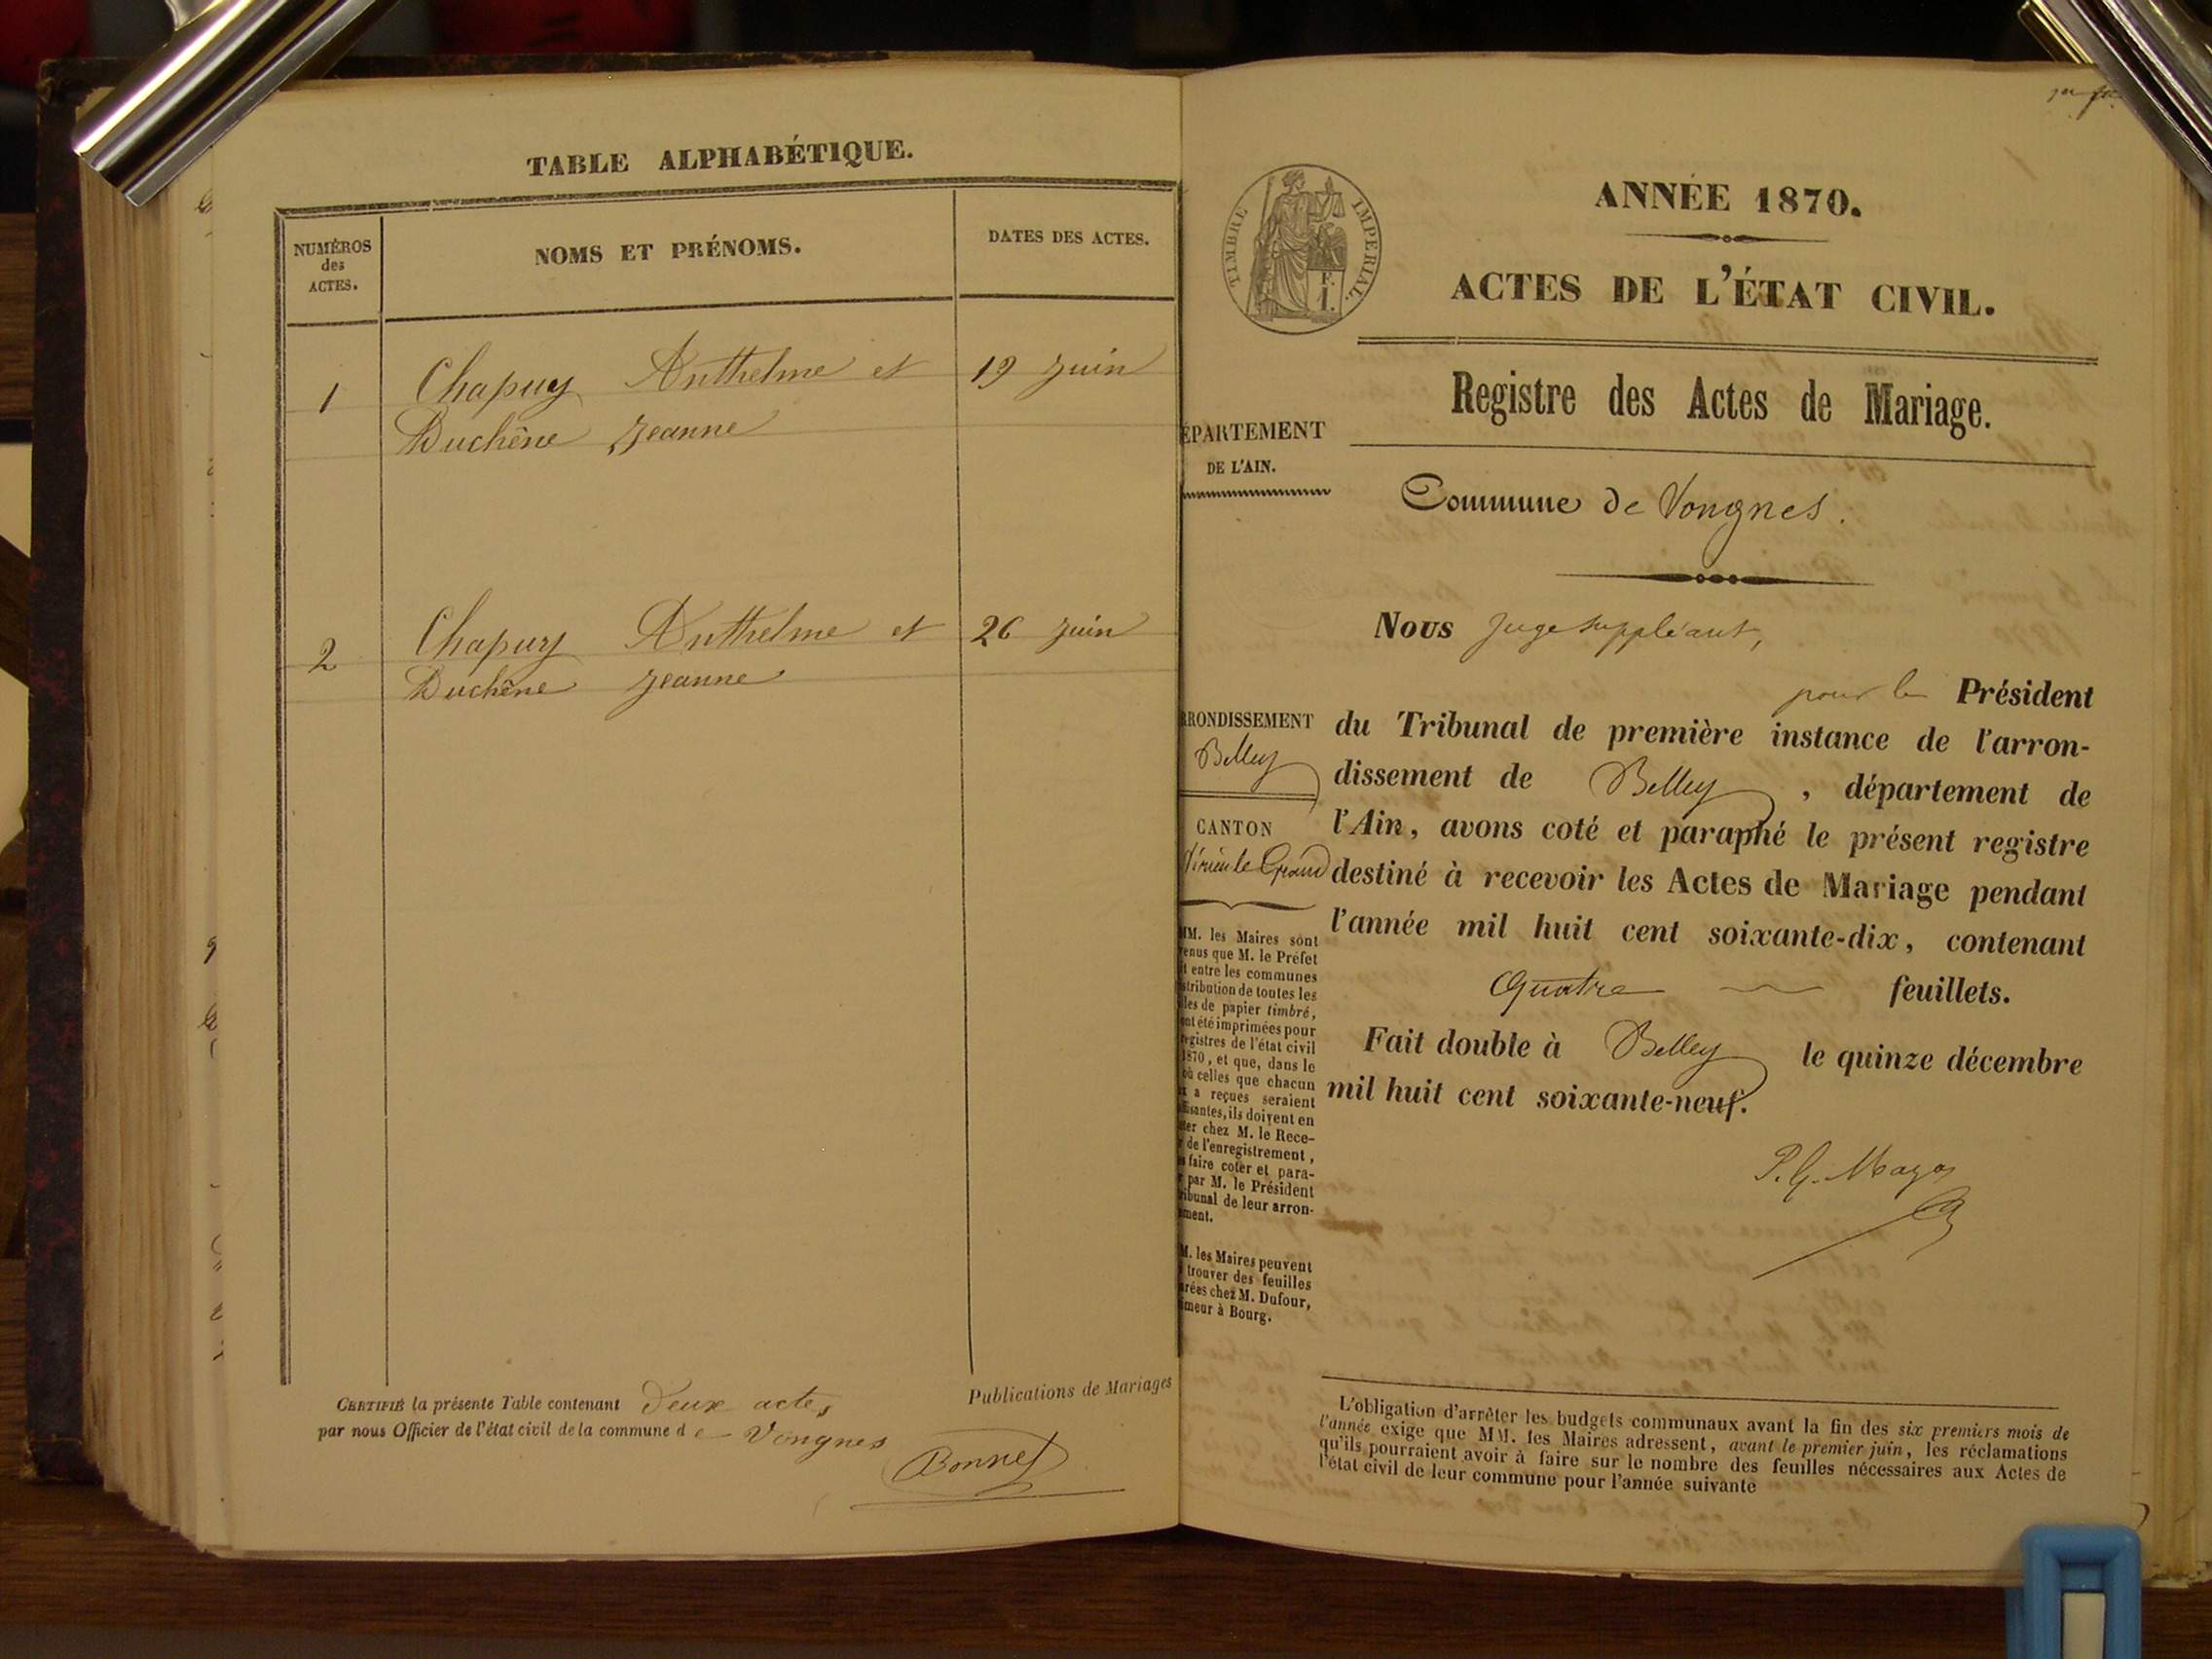 TABLE ALPHABÉTIQUE.
NUMÉROS
des
ACTES.
NOMS ET PRÉNOMS.
DATES DES ACTES.
1
Chapuy Anthelme et
19 Juin
Duchêne Jeanne
2
Chapuy Anthelme et
26 Juin
Duchêne Jeanne
Publications de Mariages
CERTIFIÉ la présente Table contenant deux actes
par nous Officier de l'état civil de la commune de Vongnes
Bonnet
TIMBRE IMPERIAL.
ANNÉE 1870.
ACTES DE L'ÉTAT CIVIL.
Registre des Actes de Mariage.
ÉPARTEMENT
DE L'AIN.
Commune de Vongnes.
Nous Juge suppléant,
pour le Président
RRONDISSEMENT
Belley
CANTON
Virieu le Grand
du Tribunal de première instance de l'arron-
dissement de Belley, département de
l'Ain, avons coté et paraphé le présent registre
destiné à recevoir les Actes de Mariage pendant
l'année mil huit cent soixante-dix, contenant
Quatre feuillets.
Fait double à Belley le quinze décembre
mil huit cent soixante-neuf.
MM. les Maires sont
enus que M. le Préfet
t entre les communes
stribution de toutes les
lles de papier timbré,
nt été imprimées pour
egistres de l'état civil
1870, et que, dans le
où celles que chacun
x a reçues seraient
ffisantes, ils doivent en
ter chez M. le Rece-
de l'enregistrement,
faire coter et para-
par M. le Président
ribunal de leur arron-
ment.
M. les Maires peuvent
trouver des feuilles
rées chez M. Dufour,
meur à Bourg.
L'obligation d'arrêter les budgets communaux avant la fin des six premiers mois de
l'année exige que MM. les Maires adressent, avant le premier juin, les réclamations
qu'ils pourraient avoir à faire sur le nombre des feuilles nécessaires aux Actes de
l'état civil de leur commune pour l'année suivante